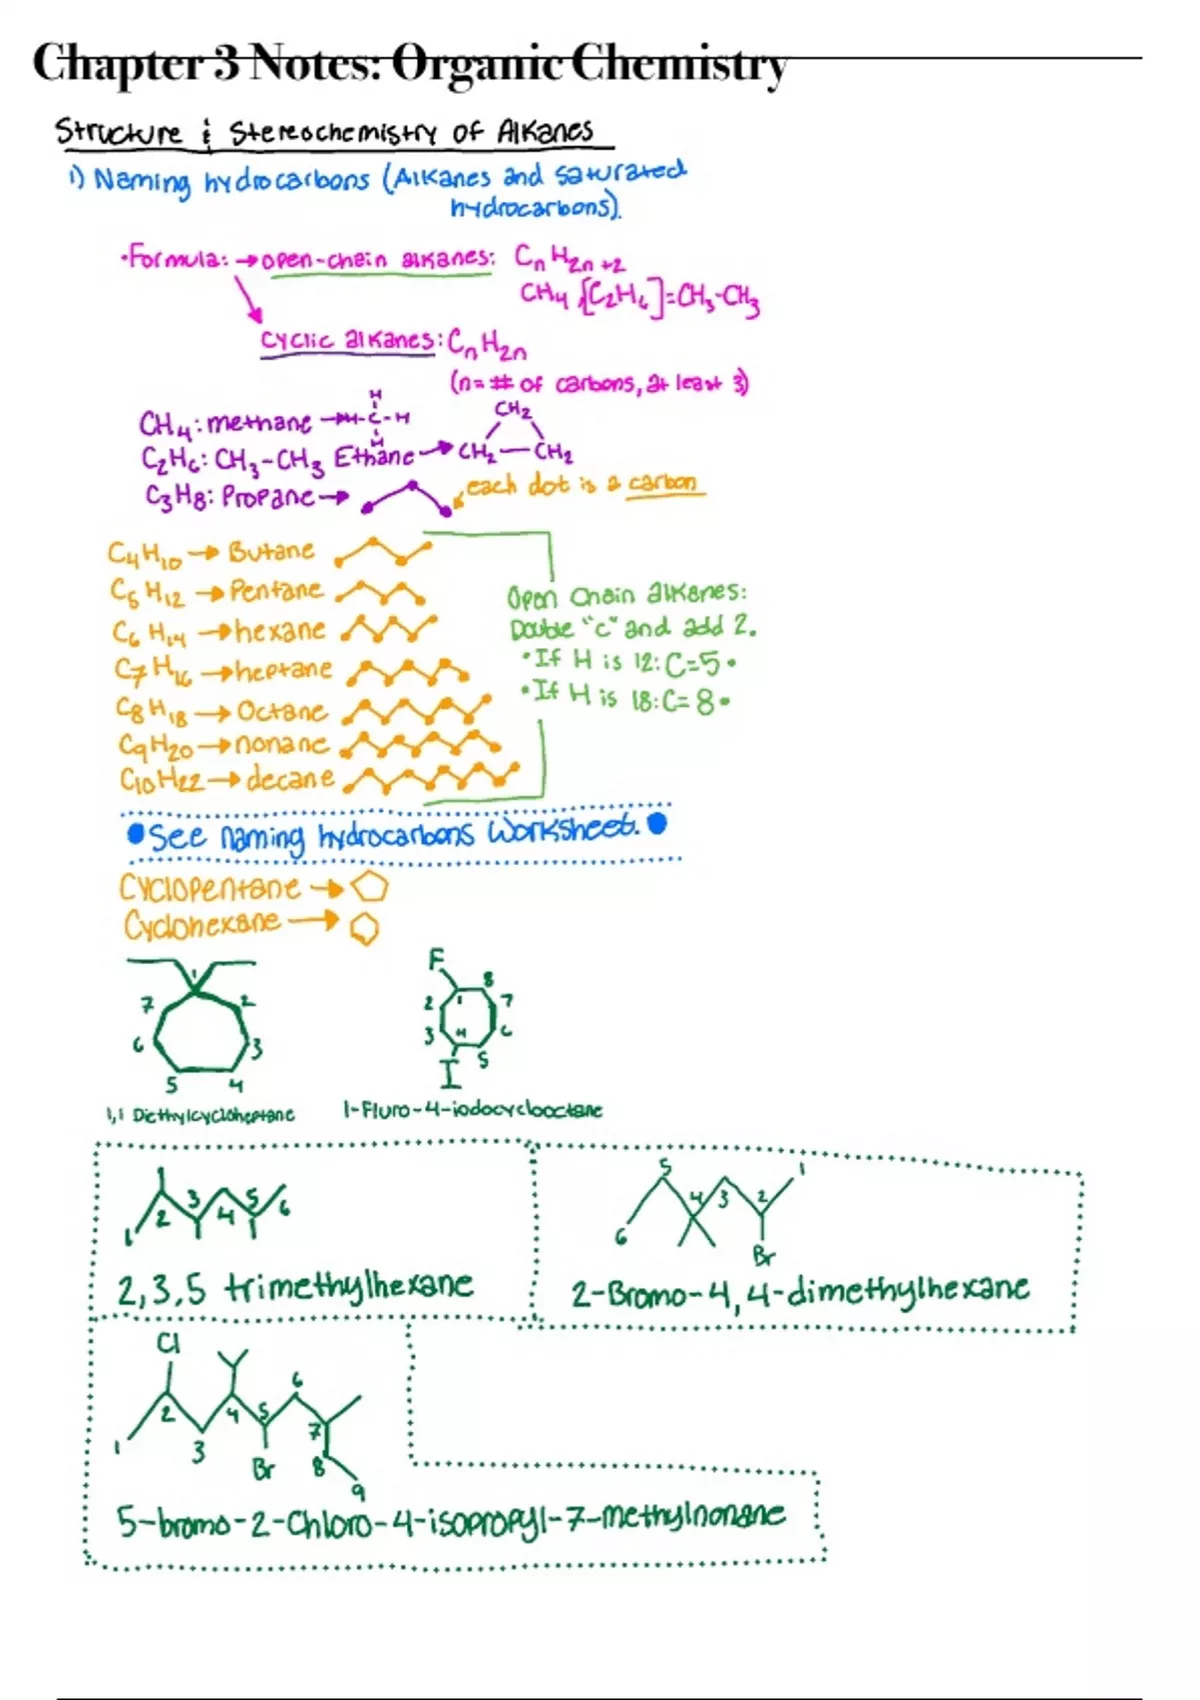 Chapter 3 Notes: Organic Chemistry
Structure & Stereochemistry of Alkanes
1) Naming hydrocarbons (Alkanes and saturated
hydrocarbons).
•Formula: → open-chain alkanes: CnH2n+2
CH4 [C2H6]=CH3-CH3
cyclic alkanes: CnH2n
(n= # of carbons, at least 3)
H
CH4: methane → H-C-H
H
CH2
C2H6: CH3-CH3 Ethane → CH2—CH2
C3H8: Propane →
each dot is a carbon
C4H10 → Butane
C5H12 → Pentane
C6H14 → hexane
C7H16 → heptane
C8H18 → Octane
C9H20 → nonane
C10H22 → decane
Open Chain alkanes:
Double "c" and add 2.
•If H is 12: C=5•
•If H is 18: C=8•
•See naming hydrocarbons Worksheet.•
Cyclopentane →
Cyclohexane →
1
7 2
6 3
5 4
F
8
2 1 7
3 4 6
5
I
1,1 Diethylcycloheptane
1-Fluro-4-iodocyclooctane
3 5 6
1 2 4
2,3,5 trimethylhexane
5 1
4 3 2
6
Br
2-Bromo-4,4-dimethylhexane
Cl
6
2 4 5
7
1 3
Br 8
9
5-bromo-2-Chloro-4-isopropyl-7-methylnonane